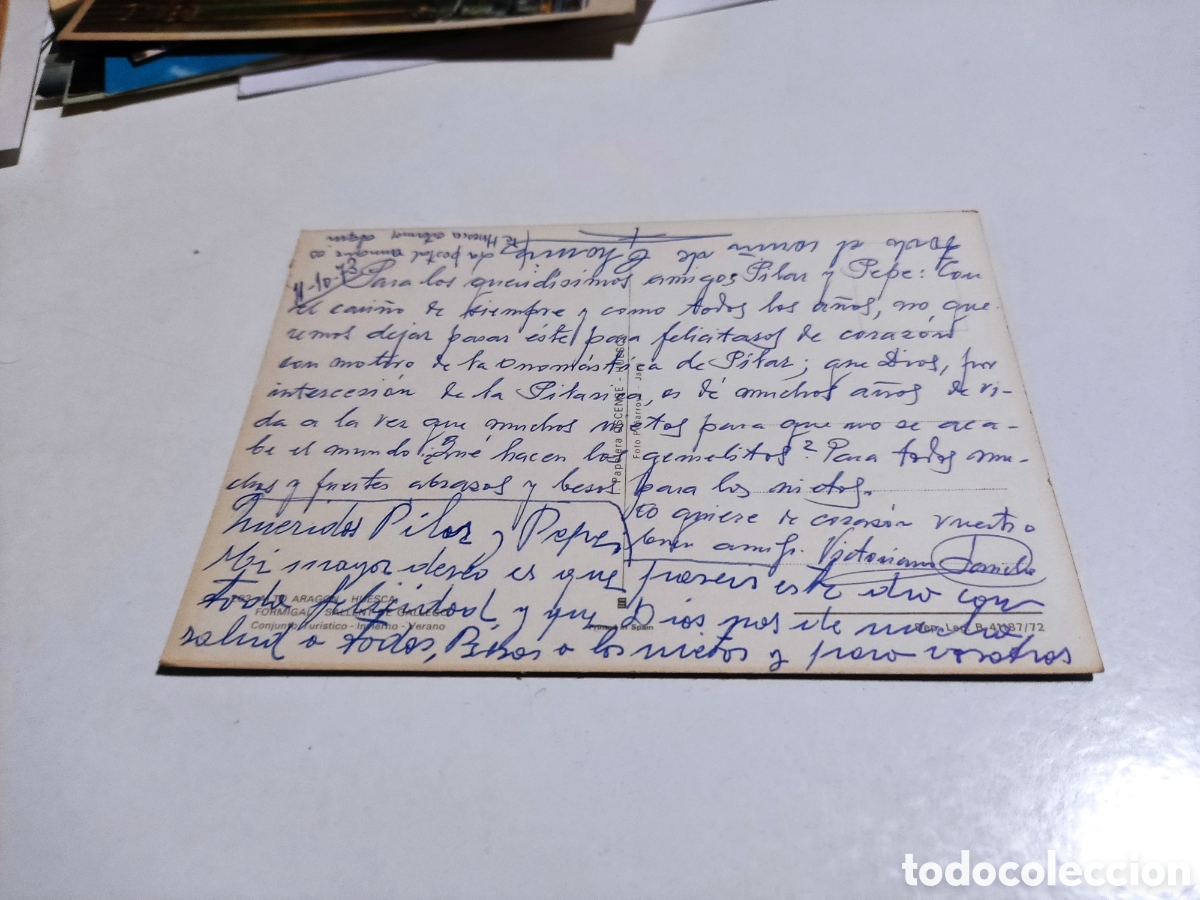 La postal aunque es
de Huesca estamos aquí
Para los queridísimos amigos Pilar y Pepe: Con
el cariño de siempre y como todos los años, no que-
remos dejar pasar éste para felicitaros de corazón
con motivo de la onomástica de Pilar; que Dios, por
intercesión de la Pilarica, os dé muchos años de vi-
da a la vez que muchos nietos para que no se aca-
be el mundo ¿Qué hacen los gemelitos? Para todos mu-
chos y fuertes abrazos y besos para los nietos.
Os quiere de corazón vuestro
buen amigo. Victoriano
Queridos Pilar y Pepe,
Mi mayor deseo es que paseis este día con
toda felicidad, y que Dios nos de mucha
salud a todos, Besos a los nietos y para vosotros
todo el cariño de
Papelera OSCENSE - HUESCA
Foto - Jaca
ALTO ARAGON - HUESCA
FORMIGAL - SALLENT DE GALLEGO
Conjunto Turístico - Invierno - Verano
Printed in Spain
Dep. Leg. B. 41187/72
todocoleccion